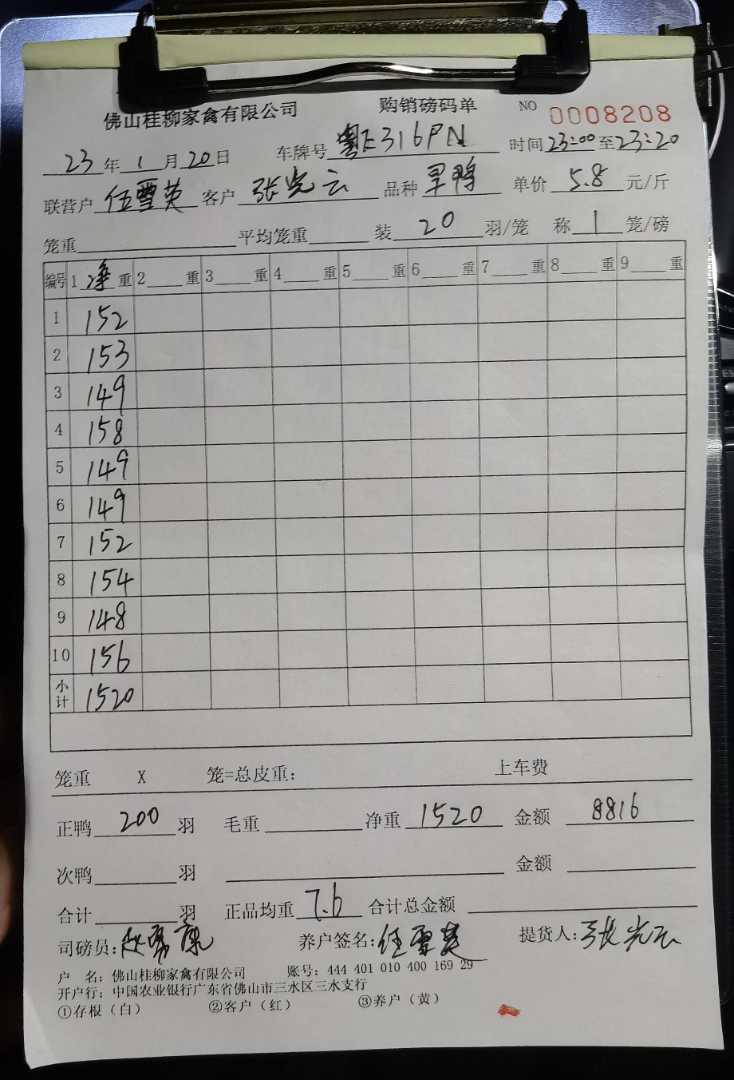 佛山桂柳家禽有限公司 购销磅码单 NO 0008208
23年1月20日 车牌号粤E316PN 时间23:00至23:20
联营户伍雪英 客户张光云 品种旱鸭 单价5.8元/斤
笼重 平均笼重 装20羽/笼 称1笼/磅
编号 1净重 2重 3重 4重 5重 6重 7重 8重 9重
1 152
2 153
3 149
4 158
5 149
6 149
7 152
8 154
9 148
10 156
小计 1520
笼重 X 笼=总皮重: 上车费
正鸭200羽 毛重 净重1520 金额8816
次鸭羽 金额
合计羽 正品均重7.6 合计总金额
司磅员: 养户签名:伍雪英 提货人:张光云
户 名:佛山桂柳家禽有限公司 账号:444 401 010 400 169 29
开户行:中国农业银行广东省佛山市三水区三水支行
①存根(白) ②客户(红) ③养户(黄)